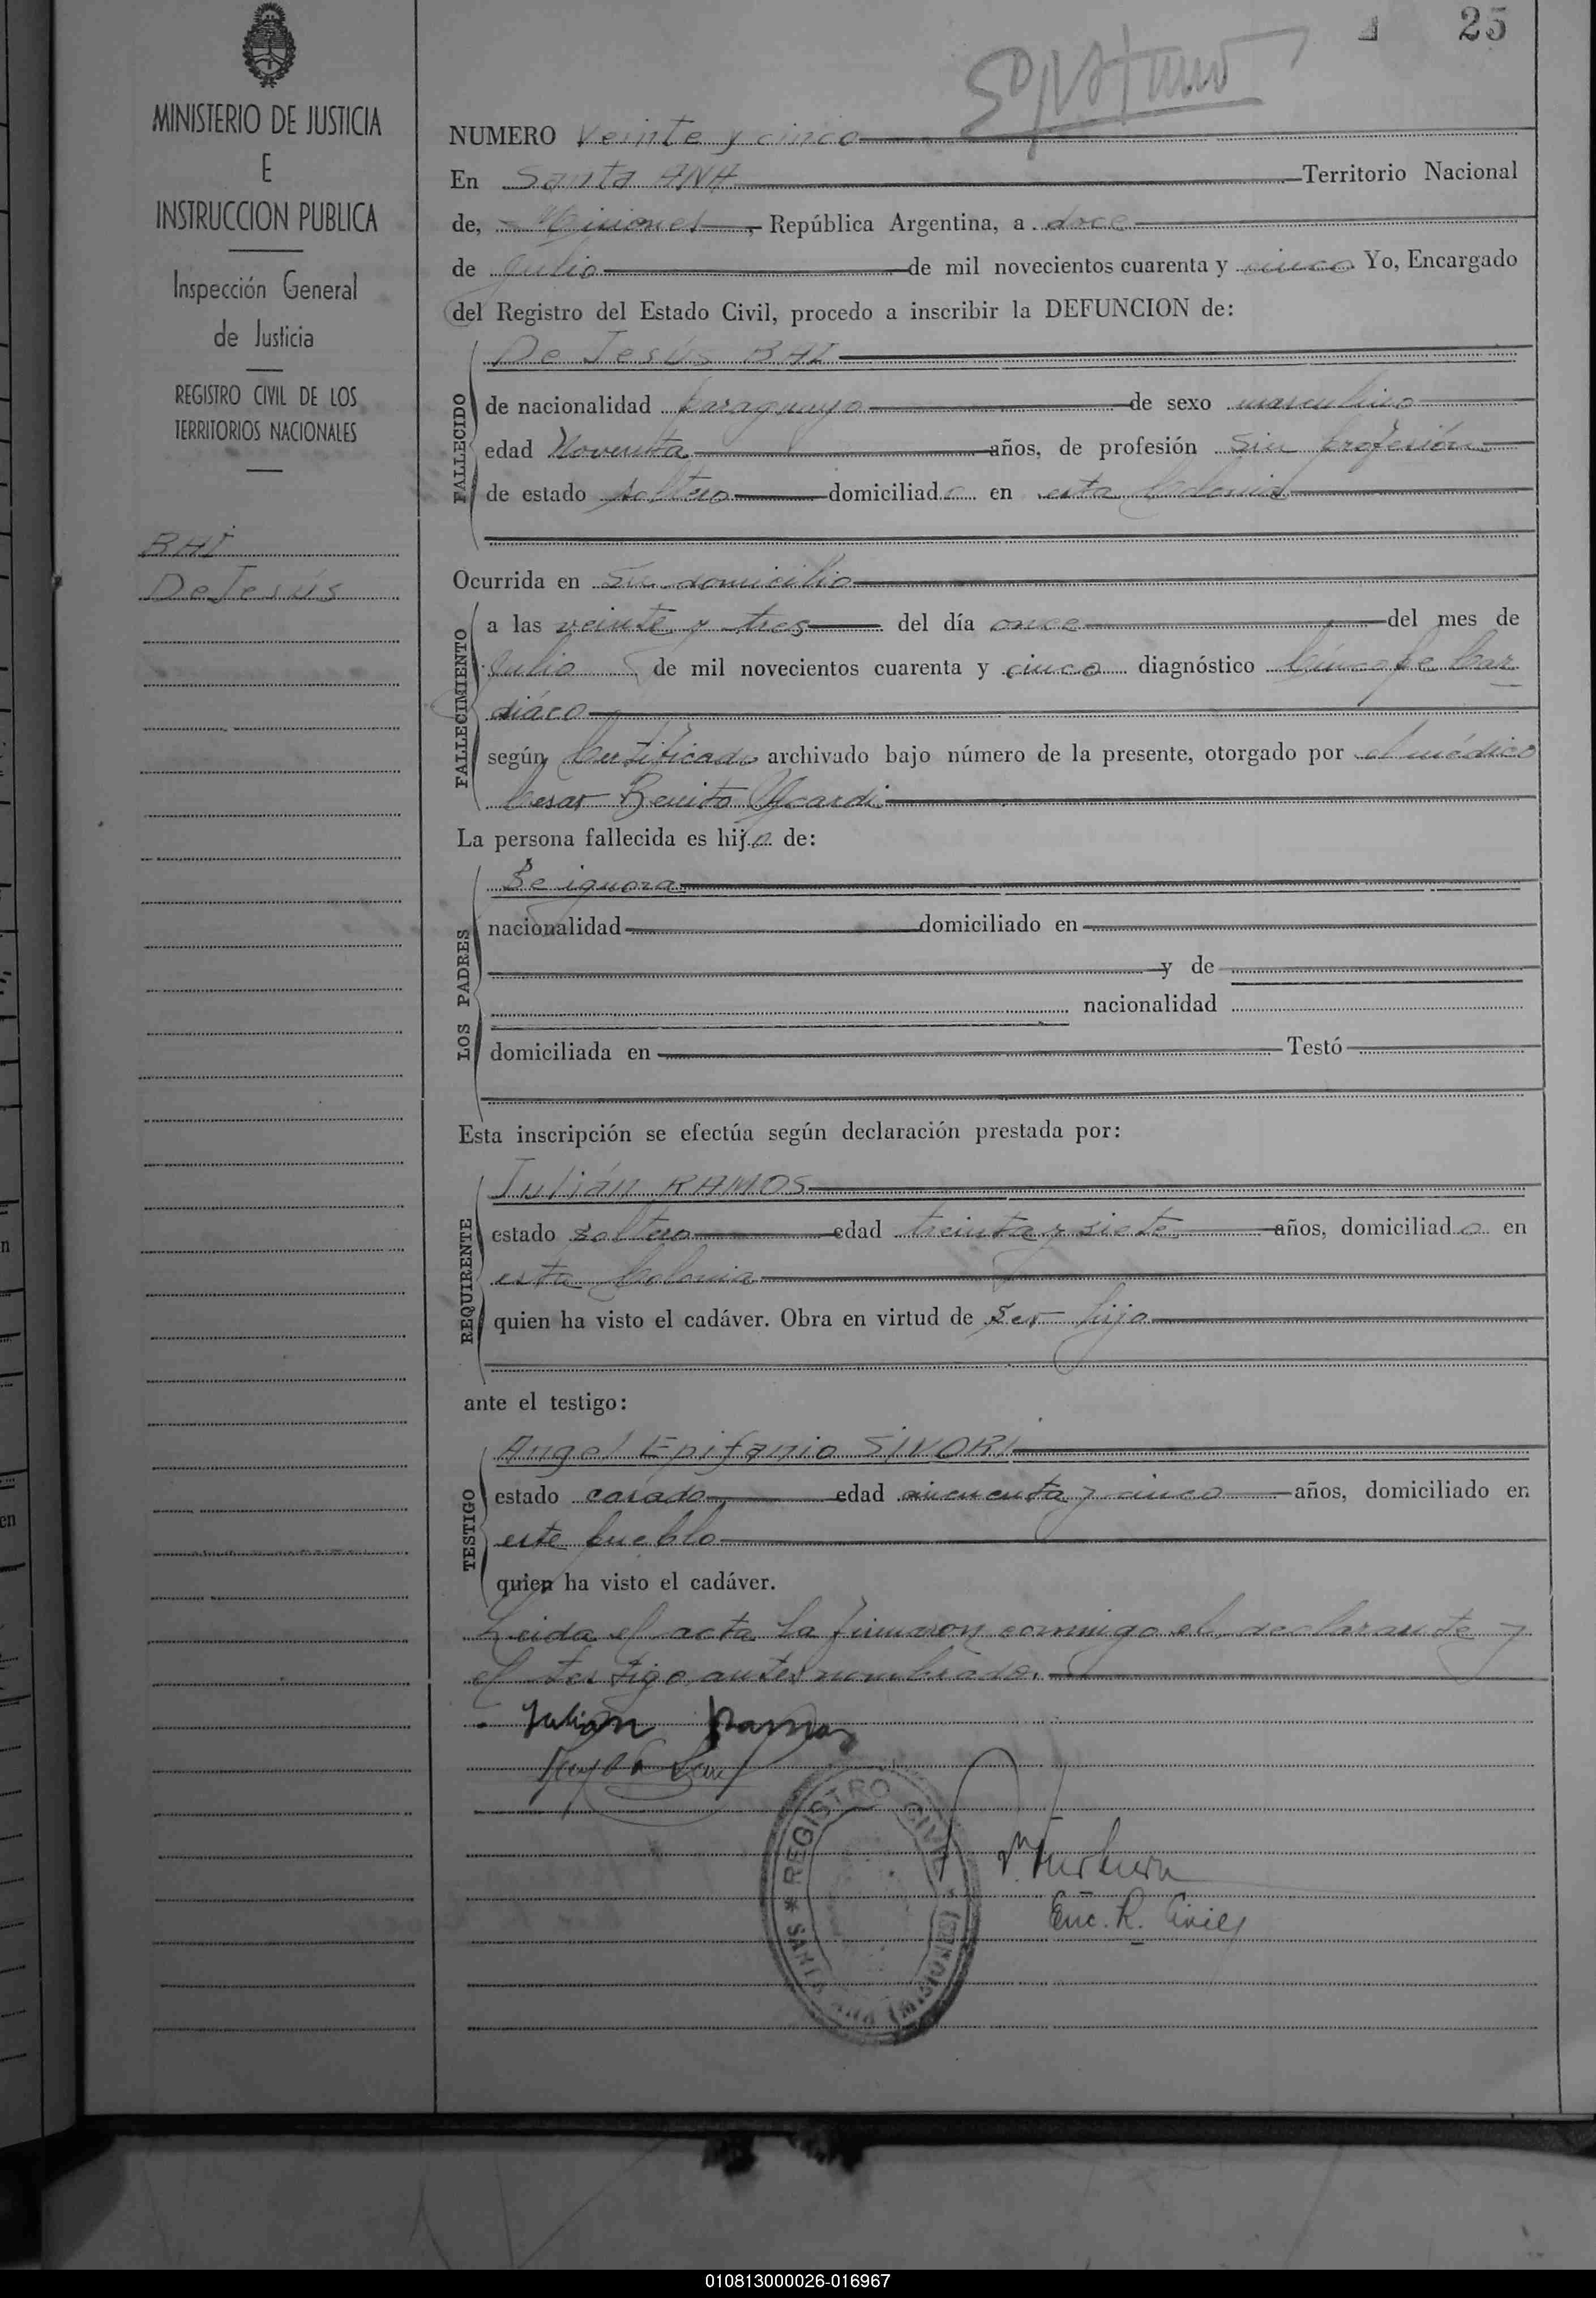 25
MINISTERIO DE JUSTICIA
E
INSTRUCCION PUBLICA
Inspección General
de Justicia
REGISTRO CIVIL DE LOS
TERRITORIOS NACIONALES
BAI
De Jesús
NUMERO Veinte y cinco
En Santa ANA Territorio Nacional
de, Misiones, República Argentina, a doce
de Julio de mil novecientos cuarenta y cinco Yo, Encargado
del Registro del Estado Civil, procedo a inscribir la DEFUNCION de:
FALLECIDO
De Jesús BAI
de nacionalidad paraguayo de sexo masculino
edad Noventa años, de profesión Sin profesión
de estado soltero domiciliado en esta Colonia
Ocurrida en Su domicilio
FALLECIMIENTO
a las veinte y tres del día once del mes de
Julio de mil novecientos cuarenta y cinco diagnóstico Síncope Car
diáco
según Certificado archivado bajo número de la presente, otorgado por el médico
Cesar Benito
La persona fallecida es hijo de:
LOS PADRES
Se ignora
nacionalidad domiciliado en
y de
nacionalidad
domiciliada en Testó
Esta inscripción se efectúa según declaración prestada por:
REQUIRENTE
Julián RAMOS
estado soltero edad treinta y siete años, domiciliado en
esta Colonia
quien ha visto el cadáver. Obra en virtud de ser hijo
ante el testigo:
TESTIGO
Angel Epifanio SIVORI
estado casado edad cincuenta y cinco años, domiciliado en
este pueblo
quien ha visto el cadáver.
Leida el acta la firmaron conmigo el declarante y
el testigo antes nombrado.
Julian Ramos
REGISTRO CIVIL
* SANTA ANA (MISIONES) *
Enc. R. Civil
010813000026-016967